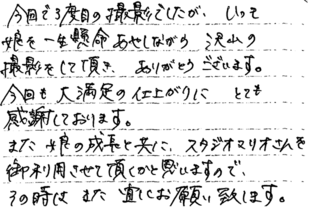 今回で3度目の撮影でしたが、いつも
娘を一生懸命あやしながら 沢山の
撮影をして頂き、ありがとうございます。
今回も 大満足の仕上がりに とても
感謝しております。
また 娘の成長と共に、スタジオマリオさんを
御利用させて頂くかと思いますので、
その時は また 宜しくお願い致します。